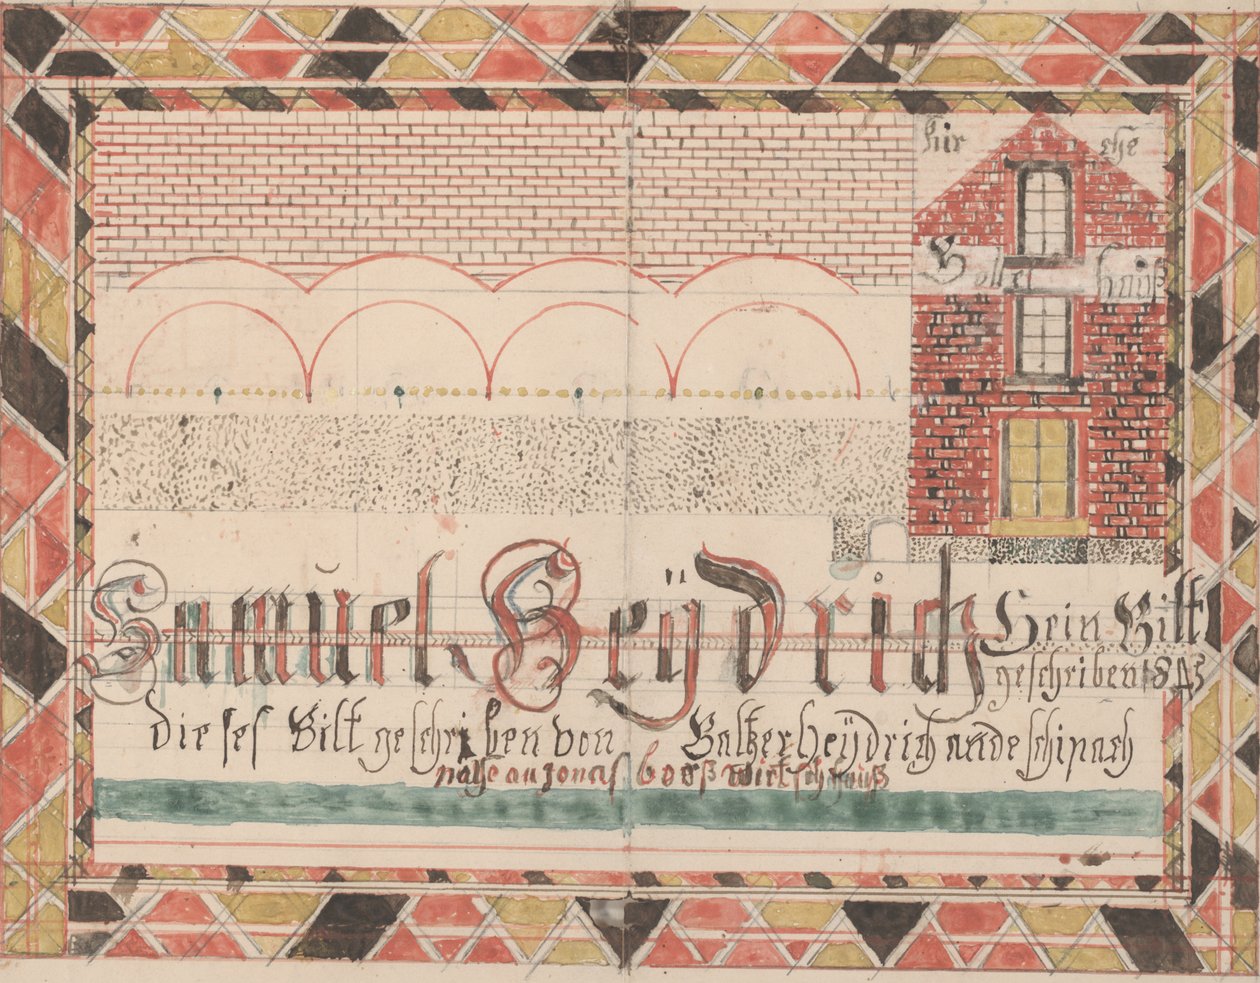 hir ehe
Soller hauß
Samuel Heÿdrich Sein Bilt
geschriben 1845
Dieses Bilt geschriben von Balßer heÿdrich an de schipach
nahe an Jonas boorß wirtschhauß